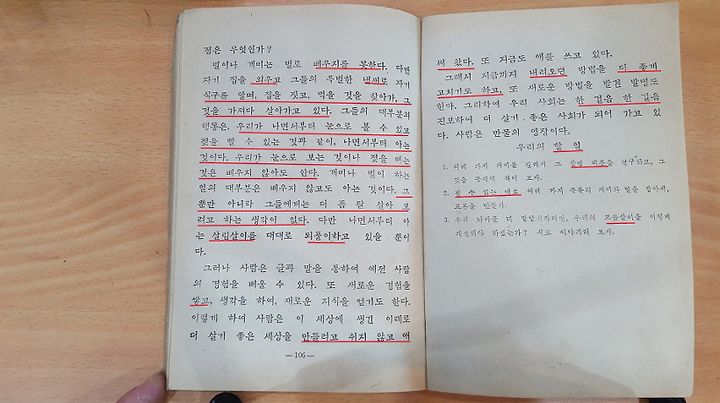 점은 무엇일가?
벌이나 개미는 별로 배우지를 못하다. 다만
자기 집을 외우고 그들의 특별한 냄새로 자기
식구를 알며, 집을 짓고, 먹을 것을 찾아가, 그
것을 가져다 살아가고 있다. 그들의 대부분의
행동은, 우리가 나면서부터 눈으로 볼 수 있고
젖을 빨 수 있는 것과 같이, 나면서부터 아는
것이다. 우리가 눈으로 보는 것이나 젖을 빠는
것은 배우지 않아도 안다. 개미나 벌이 하는
일의 대부분은 배우지 않고도 아는 것이다. 그
뿐만 아니라 그들에게는 더 좀 잘 살아 보
려고 하는 생각이 없다. 다만 나면서부터 아
는 살림살이를 대대로 되풀이하고 있을 뿐이
다.
그러나 사람은 글과 말을 통하여 예전 사람
의 경험을 배울 수 있다. 또 새로운 경험을
쌓고, 생각을 하여, 새로운 지식을 얻기도 한다.
이렇게 하여 사람은 이 세상에 생긴 이래로
더 살기 좋은 세상을 만들려고 쉬지 않고 애
—106—
써 왔다. 또 지금도 애를 쓰고 있다.
그래서 지금까지 내려오던 방법을 더 좋게
고치기도 하고, 또 새로운 방법을 발견 발명도
한다. 그리하여 우리 사회는 한 걸음 한 걸음
진보하여 더 살기 좋은 사회가 되어 가고 있
다. 사람은 만물의 영장이다.
우리의 할 일
1. 여러 가지 개미를 길러서 그 살림 버릇을 연구하고, 그
것을 공책에 적어 보자.
2. 될 수 있는 대로 여러 가지 종류의 개미와 벌을 잡아서,
표본을 만들자.
3. 우리 나라를 더 발달시키려면, 우리의 모듬살이를 어떻게
개선해야 하겠는가? 서로 이야기해 보자.